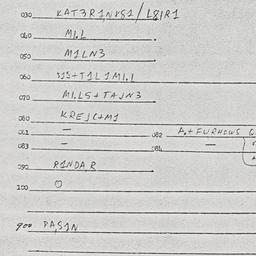 030 KAT3R1NVS1/L8IR1
040 M1.L
050 M1LN3
060 313+T1L1M1.L
070 M1.L5+TAJN3
080 KREJC+M1
081 — 082 A.+FURHOUS
083 — 084 —
090 R1NDA.R
100 O
900 PA,S1N